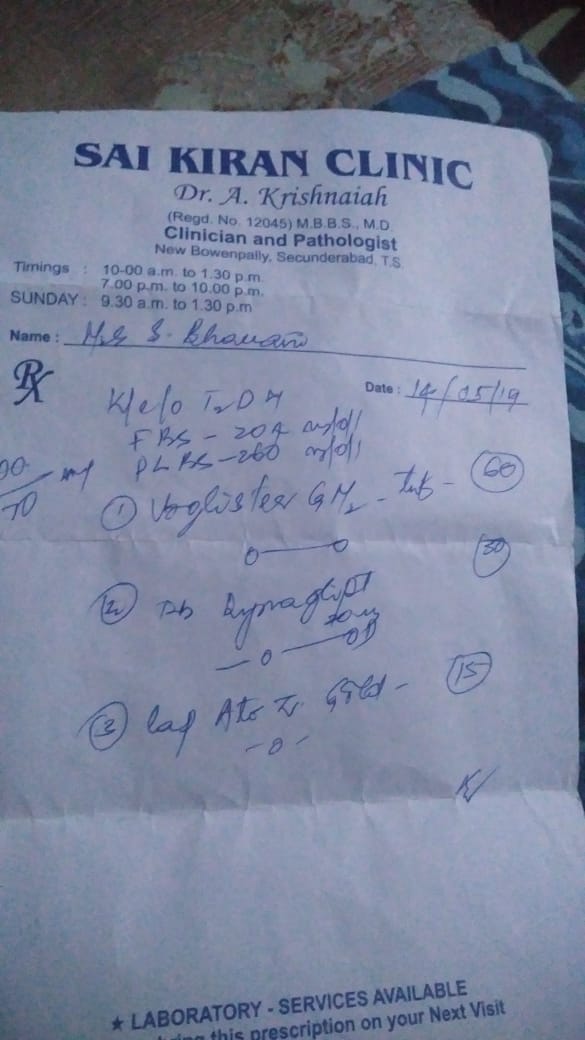 SAI KIRAN CLINIC
Dr. A. Krishnaiah
(Regd. No. 12045) M.B.B.S., M.D.
Clinician and Pathologist
New Bowenpally, Secunderabad, T.S.
Timings : 10-00 a.m. to 1.30 p.m.
7.00 p.m. to 10.00 p.m.
SUNDAY : 9.30 a.m. to 1.30 p.m
Name : S. Bhavani
Rx
Date : 14/05/19
K/c/o T2DM
FBS - 204 mg/dl
PLBS - 260 mg/dl
① GM2 - Tab - 60
② Tab 30
20mg
③ Cap Gold - 15
★ LABORATORY - SERVICES AVAILABLE
this prescription on your Next Visit